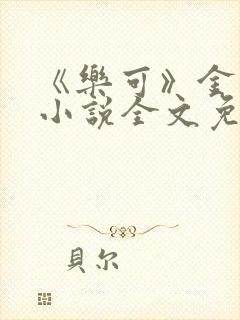 《樂可》金
小說全文免
貝尔